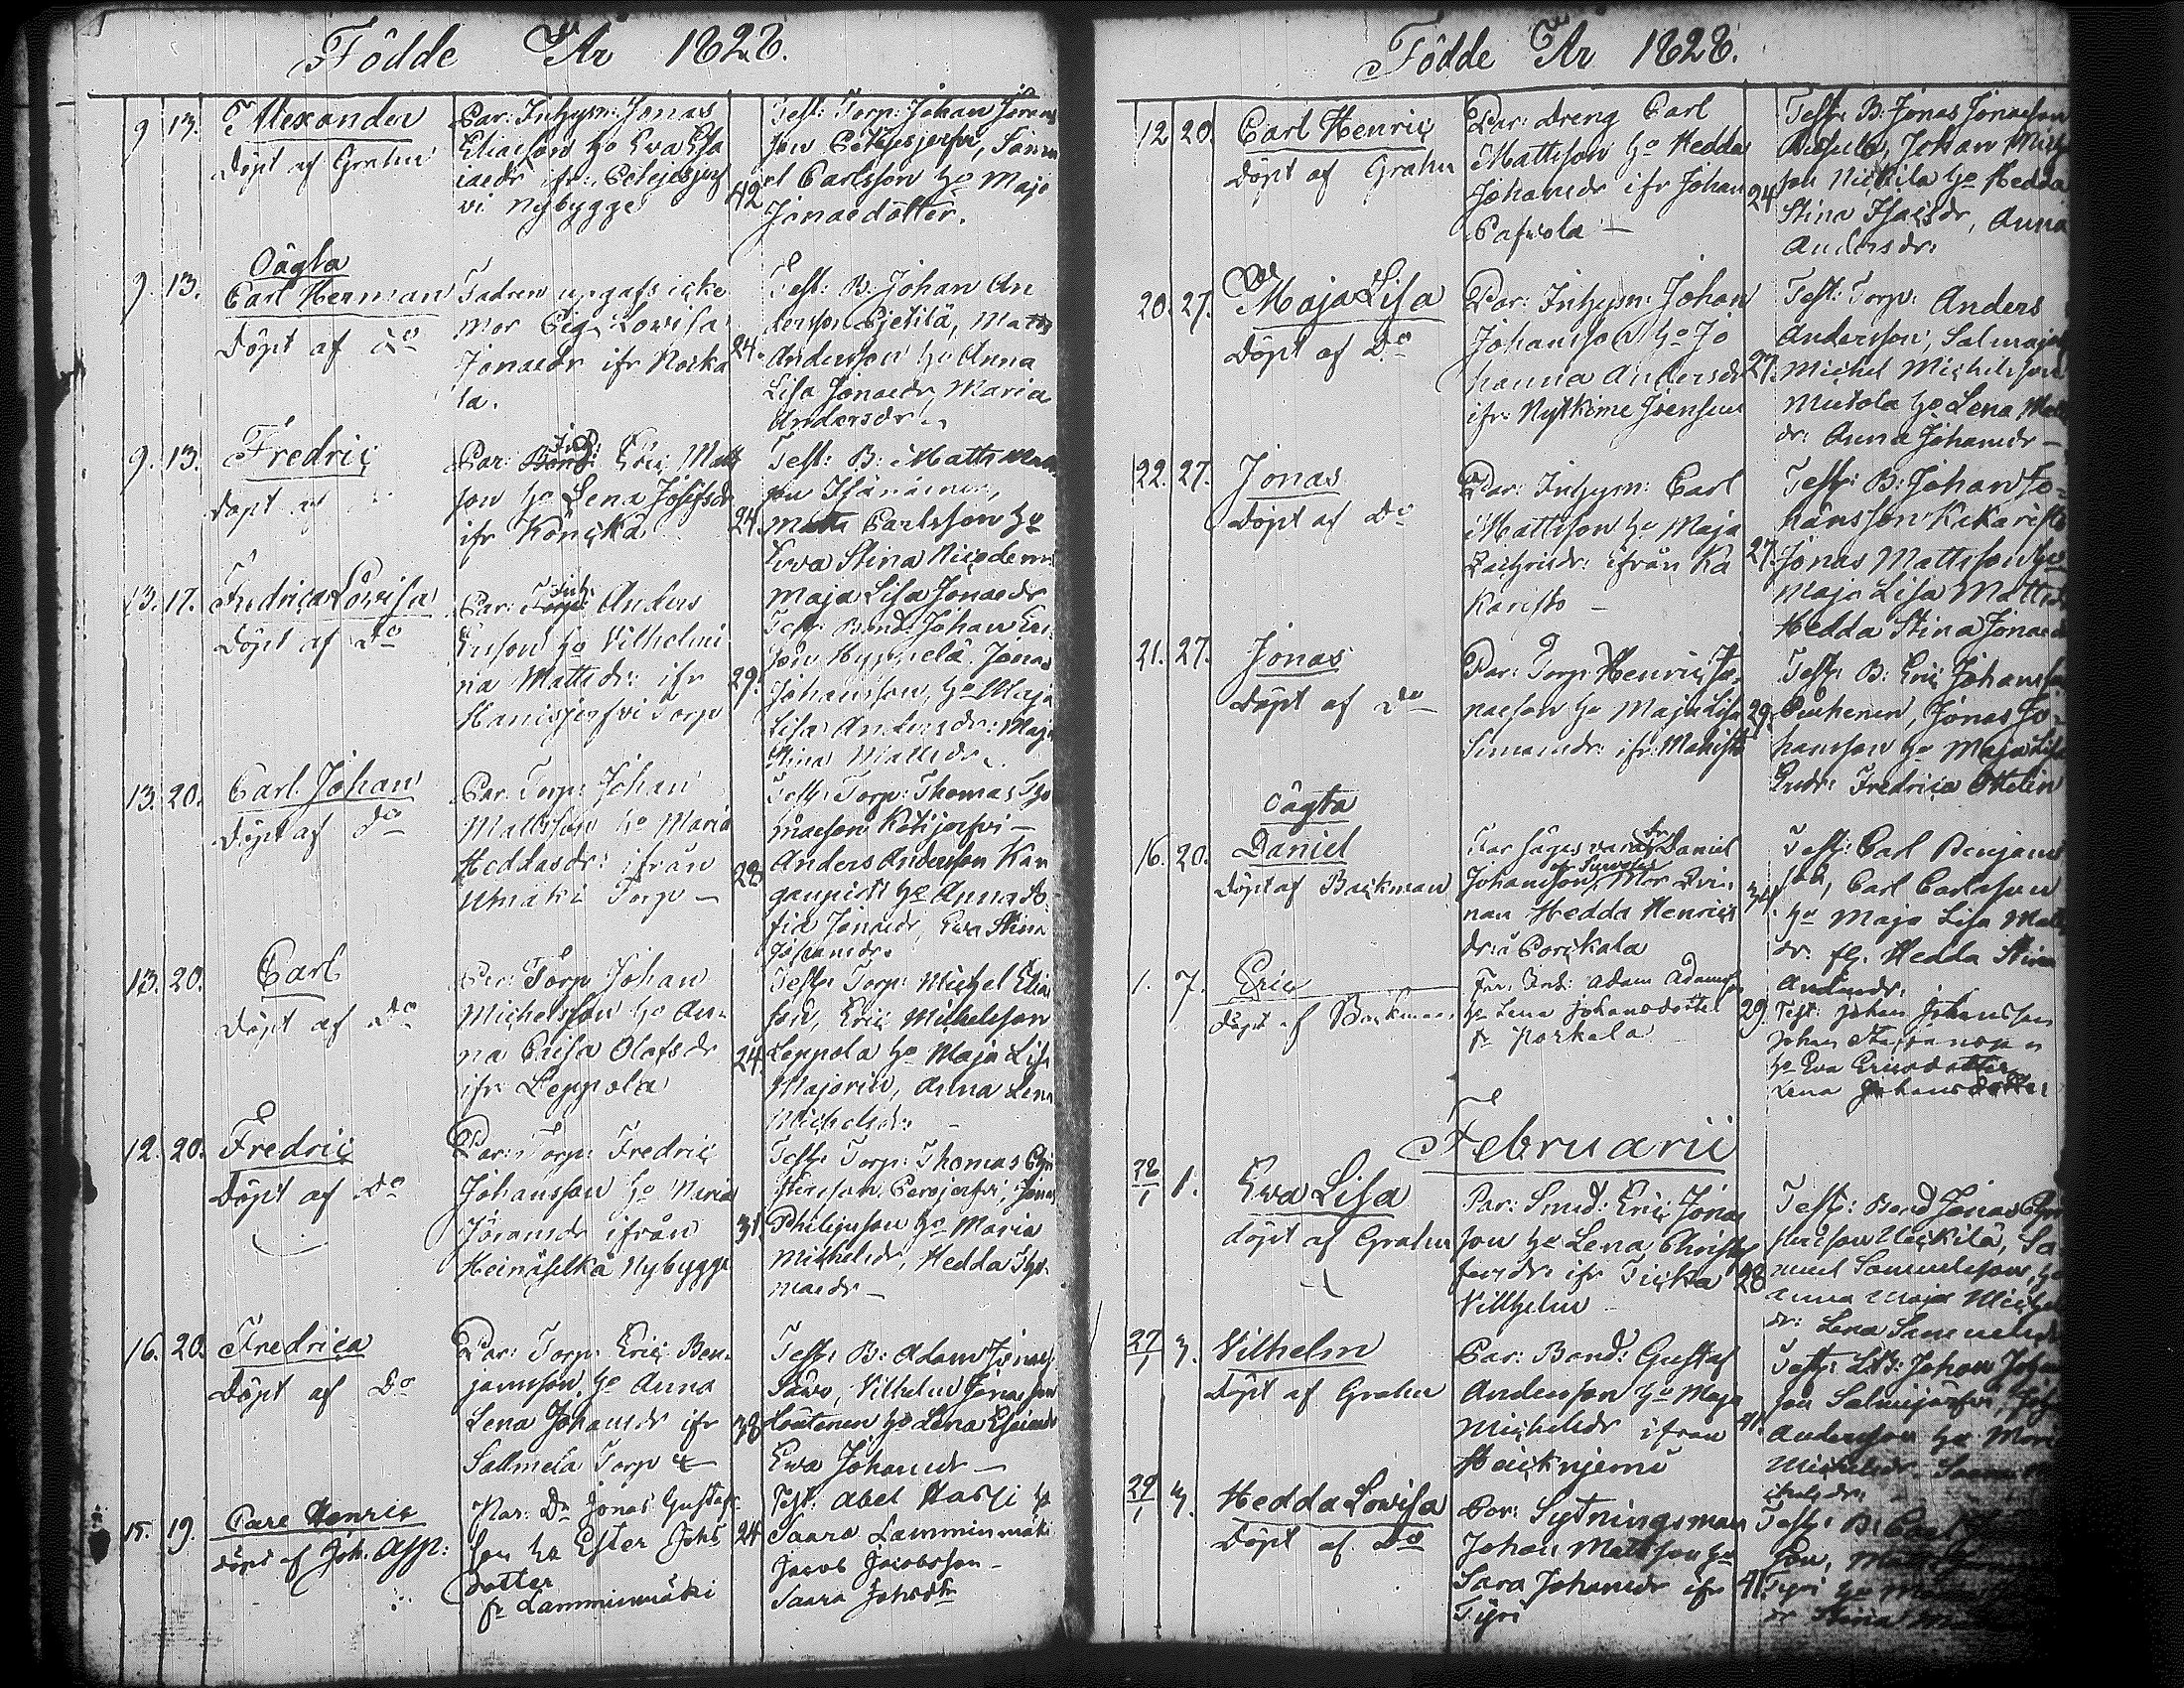 Födde År 1828.
9 13. Alexander
Döpt af Grahn
Par: Inhysn: Jonas
Eliaeson h:o Eva Esa
iaedr ifr: Petejesjerf
vi nybygge
42
Test: Torp: Johan
son Petejesjerfvi,
el Carlsson h:o Maja
Jonaedotter.
9. 13. Oägta
Carl Herman
Döpt af D:o
Fadren upgafs icke
Mor Pig. Lovisa
Jonaedr ifr Noska
la.
24.
Test: B: Johan An
dersson Pjetilä, Matts
Andersson h:o Anna
Lisa Jonaedr, Maria
Andersdr.
9. 13. Fredric
Döpt af
Par: Eric Matts
son h:o Lena Josefsdr
ifr Konçka
24.
Test: B: Matts
son
Matts Carlsson h:o
Eva Stina Nicodem
Maja Lisa Jonaedr
13. 17. Fredrica Lovisa
Döpt af D:o
Par: Inh: Anders
Ersson h:o Vilhelmi
na Mattsdr: ifr
Hanisjerfvi Torp
29.
Test: Bond: Johan Eri
son Hyppelä. Jonas
Johansson, h:o Maja
Lisa Andersdr: Maja
Stina Mattsdr.
13. 20. Carl Johan
Döpt af D:o
Par: Torp: Johan
Mattsson h:o Maria
Heddasdr: ifrån
Torp
28
Test: Torp: Thomas Tho
maeson Kotijerfvi
Anders Andersson Kan
h:o Anna So
fia Jonaedr, Eva Stina
Johansdr.
13. 20. Carl
Döpt af D:o
Par: Torp Johan
Michelsson h:o An
na Caisa Olofsdr
ifr Leppola
24.
Test: Torp: Michel Elia
son, Eric Michelsson
Leppola h:o Maja Lisa
Majorin, Anna Lena
Michelsdr:
12. 20. Fredric
Döpt af D:o
Par: Torp: Fredric
Johansson h:o Maria
Jöransdr ifrån
Heinäselkä Nybygge
31.
Test: Torp: Thomas
Jonas
Philipsson h:o Maria
Michelsdr, Hedda Tho
maedr
16. 20. Fredrica
Döpt af D:o
Par: Torp: Eric Ben
jamsson, h:o Anna
Lena Johansdr ifr
Sallmela Torp
38
Test: B: Adam Jonae
Savo, Vilhelm Jonaeson
Loutonen h:o Lena
Eva Johansdr
15. 19. Carl Henric
döpt af Joh. Asp:
Par: Dr Jonas Gustafs
son h:o Ester Johs
dotter
fr Lamminmäki
24
Test: Abel Harji h:o
Saara Lamminmäki
Jacob Jacobsson
Saara Johsdtr
Födde År 1828.
12 20. Carl Henric
Döpt af Grahn
Par: dreng Carl
Mattsson h:o Hedda
Johansdr ifr Johan
Pafvola
24
Test: B: Jonas Jonaeson
Johan Mich
son Nickila h:o Hedda
Stina Isacsdr, Anna
Andersdr:
20. 27. Maja Lisa
Döpt af D:o
Par: Inhysn: Johan
Johansson h:o Jo
hanna Andersdr
ifr: Nykkime
27.
Test: Torp: Anders
Andersson, Salmajer
Michel Michelsson
Mutola h:o Lena Matts
dr: Anna Johansdr
22. 27. Jonas
Döpt af D:o
Par: Inhysn: Carl
Mattsson h:o Maja
ifrån Ka
karisto
27.
Test: B: Johan Jo
hansson Kakaristo
Jonas Mattsson h:o
Maja Lisa Mattsdr
Hedda Stina Jonaedr
21. 27. Jonas
Döpt af D:o
Par: Torp: Henric Jo
naeson h:o Maja Lisa
Simonsdr: ifr:
29.
Test: B: Eric Johansson
Jonas Jo
hansson h:o Maja Lisa
Fredrica Ottelin
Oägta
16. 20. Daniel
Döpt af Backman
Far säges vara dr Daniel
Johansson Mor Qvi
nan Hedda Henrics
dr: Porçkala
34
Test: Carl Benjams
son, Carl Carlsson
h:o Maja Lisa Matts
dr: fl. Hedda Stina
Andersdr:
1. 7. Eric
Döpt af Backman
Adam Adamsson
h:o Lena Johansdotter
fr Porkala
29.
Test: Johan Johansson
Johan
h:o Eva Ericsdotter
Lena Johansdotter
Februarii
28/1 1. Eva Lisa
döpt af Grahn
Par: Smed: Eric Jonae
son h:o Lena Christof
fersdr: ifr Tiçka
Vilhelm
28
Test: Bond Jonas Chri
Nickilä, Sa
muel Samuelsson, h:o
Anna Maja Michels
dr: Lena Samuelsdr
27/1 3. Vilhelm
Döpt af Grahn
Par: Bond: Gustaf
Andersson h:o Maja
Michelsdr ifrån
Haickniemi
41.
Test: Johan Johans
son Salmijerfvi,
Andersson h:o Mari
Michelsdr.
29/1 3. Hedda Lovisa
Döpt af D:o
Par: Sytningsman
Johan Mattsson h:o
Sara Johansdr ifr
Tyri
41.
Test: B: Carl
son,
Tyri h:o
dr Stina